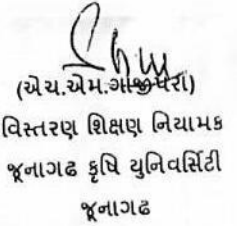 (એચ.એમ.ગાજીપરા)
વિસ્તરણ શિક્ષણ નિયામક
જૂનાગઢ કૃષિ યુનિવર્સિટી
જૂનાગઢ